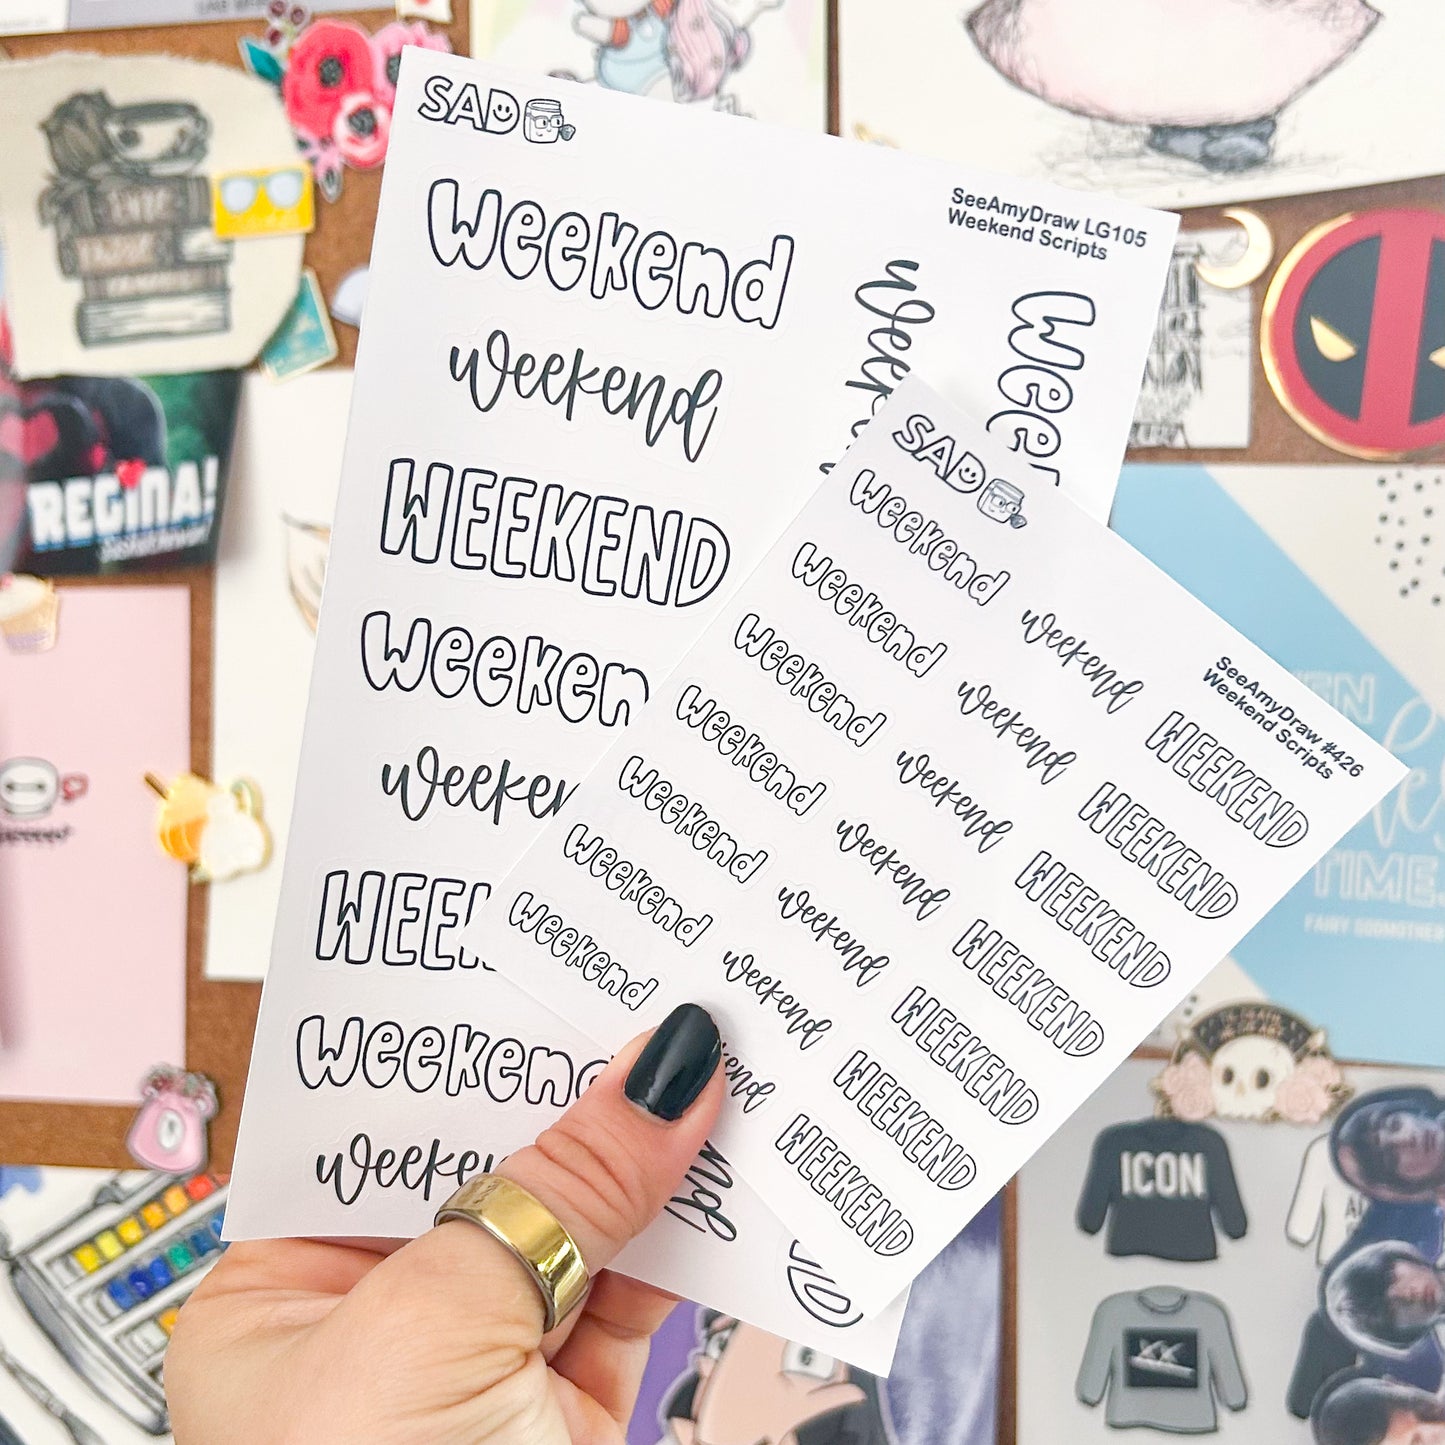 SAD
SeeAmyDraw LG105
Weekend Scripts
weekend
weekend
WEEKEND
weekend
SAD
SeeAmyDraw #426
Weekend Scripts
weekend
weekend
weekend
weekend
weekend
weekend
weekend
weekend
weekend
weekend
weekend
weekend
weekend
WEEKEND
WEEKEND
WEEKEND
WEEKEND
WEEKEND
WEEKEND
WEEKEND
REGINA!
TIME.
FAIRY GODMOTHER
ICON